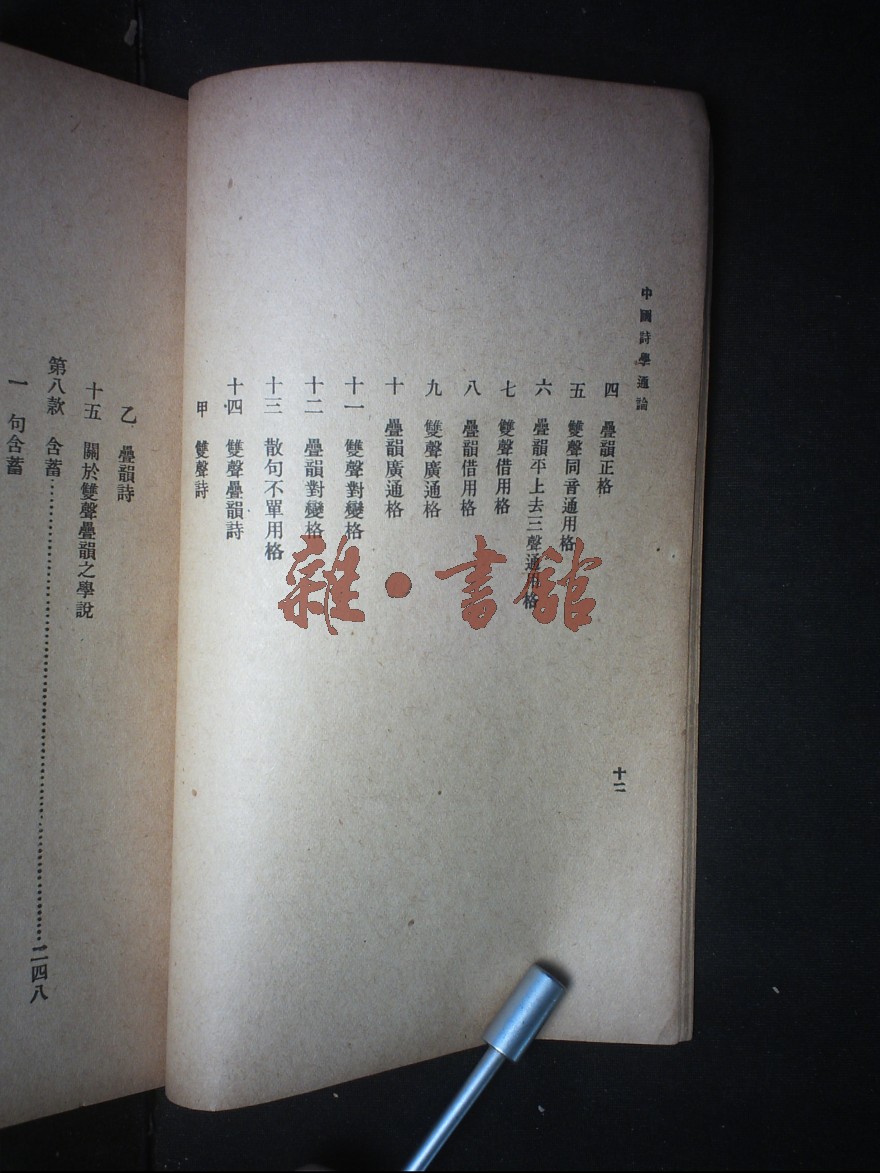 中國詩學通論
四　疊韻正格
五　雙聲同音通用格
六　疊韻平上去三聲通用格
七　雙聲借用格
八　疊韻借用格
九　雙聲廣通格
十　疊韻廣通格
十一　雙聲對變格
十二　疊韻對變格
十三　散句不單用格
十四　雙聲疊韻詩
甲　雙聲詩
十二
乙　疊韻詩
十五　關於雙聲疊韻之學說
第八款　含蓄…………………………二四八
一　句含蓄
雜·書館